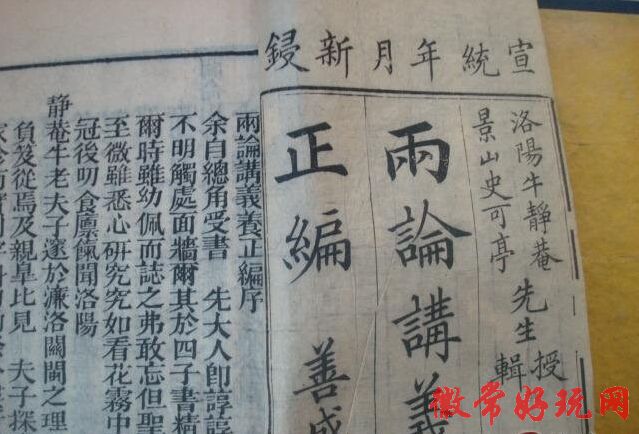 宣統年月新鋟
洛陽牛靜菴
景山史可亭
先生
授
輯
兩論講義
正編 善成
兩論講義養正編序
余自總角受書 先大人卽諄諄
不明觸處面牆爾其於四子書精
爾時雖幼佩而誌之弗敢忘但聖
至微雖悉心研究究如看花霧中
冠後叨食廩餼聞洛陽
靜菴牛老夫子邃於濂洛關閩之理
負笈從焉及親臯比見 夫子探
徽常好玩网